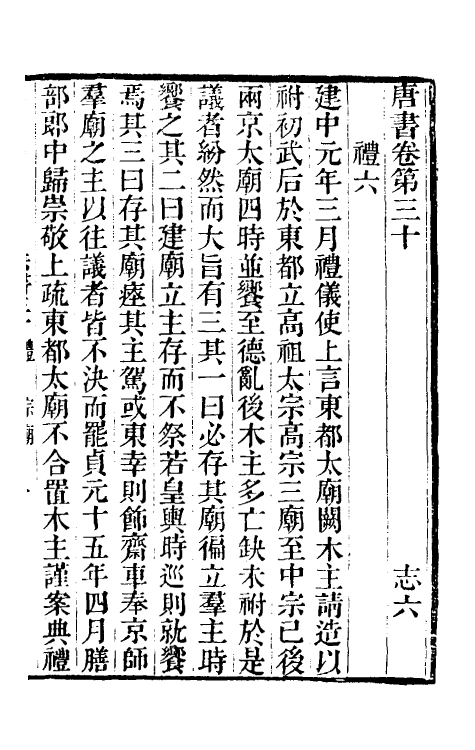 唐書卷第三十 志六
禮六
建中元年三月禮儀使上言東都太廟闕木主請造以
祔初武后於東都立高祖太宗高宗三廟至中宗已後
兩京太廟四時並饗至德亂後木主多亡缺未祔於是
議者紛然而大旨有三其一曰必存其廟徧立羣主時
饗之其二曰建廟立主存而不祭若皇輿時巡則就饗
焉其三曰存其廟瘞其主駕或東幸則飾齋車奉京師
羣廟之主以往議者皆不決而罷貞元十五年四月膳
部郎中歸崇敬上疏東都太廟不合置木主謹案典禮